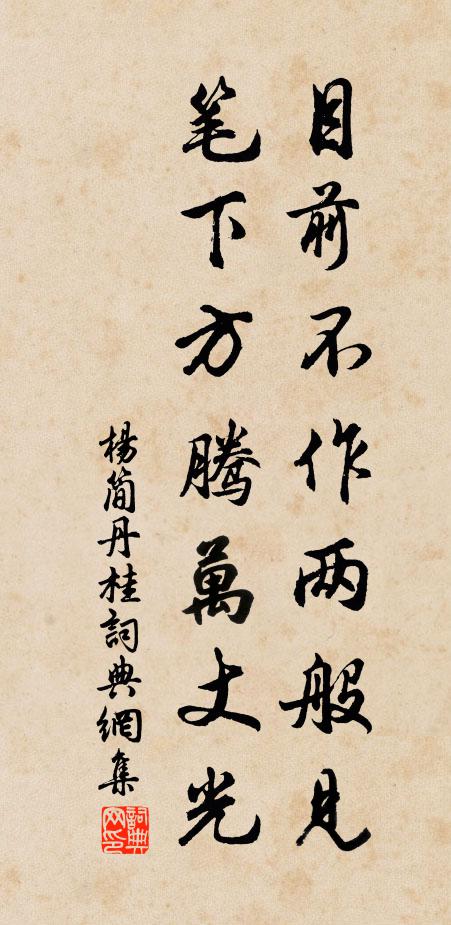 目前不作两般見
笔下方腾萬丈光
楊简丹桂詞典網集
詞典网印